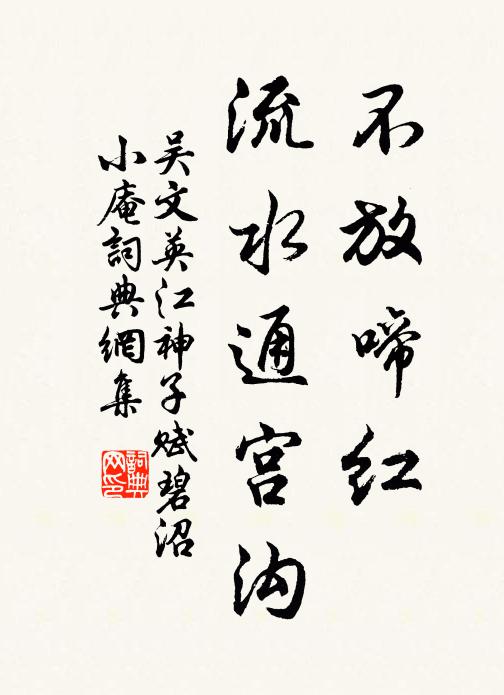 不放啼红
流水通宫沟
吴文英江神子赋碧沼
小庵詞典網集
詞典网印